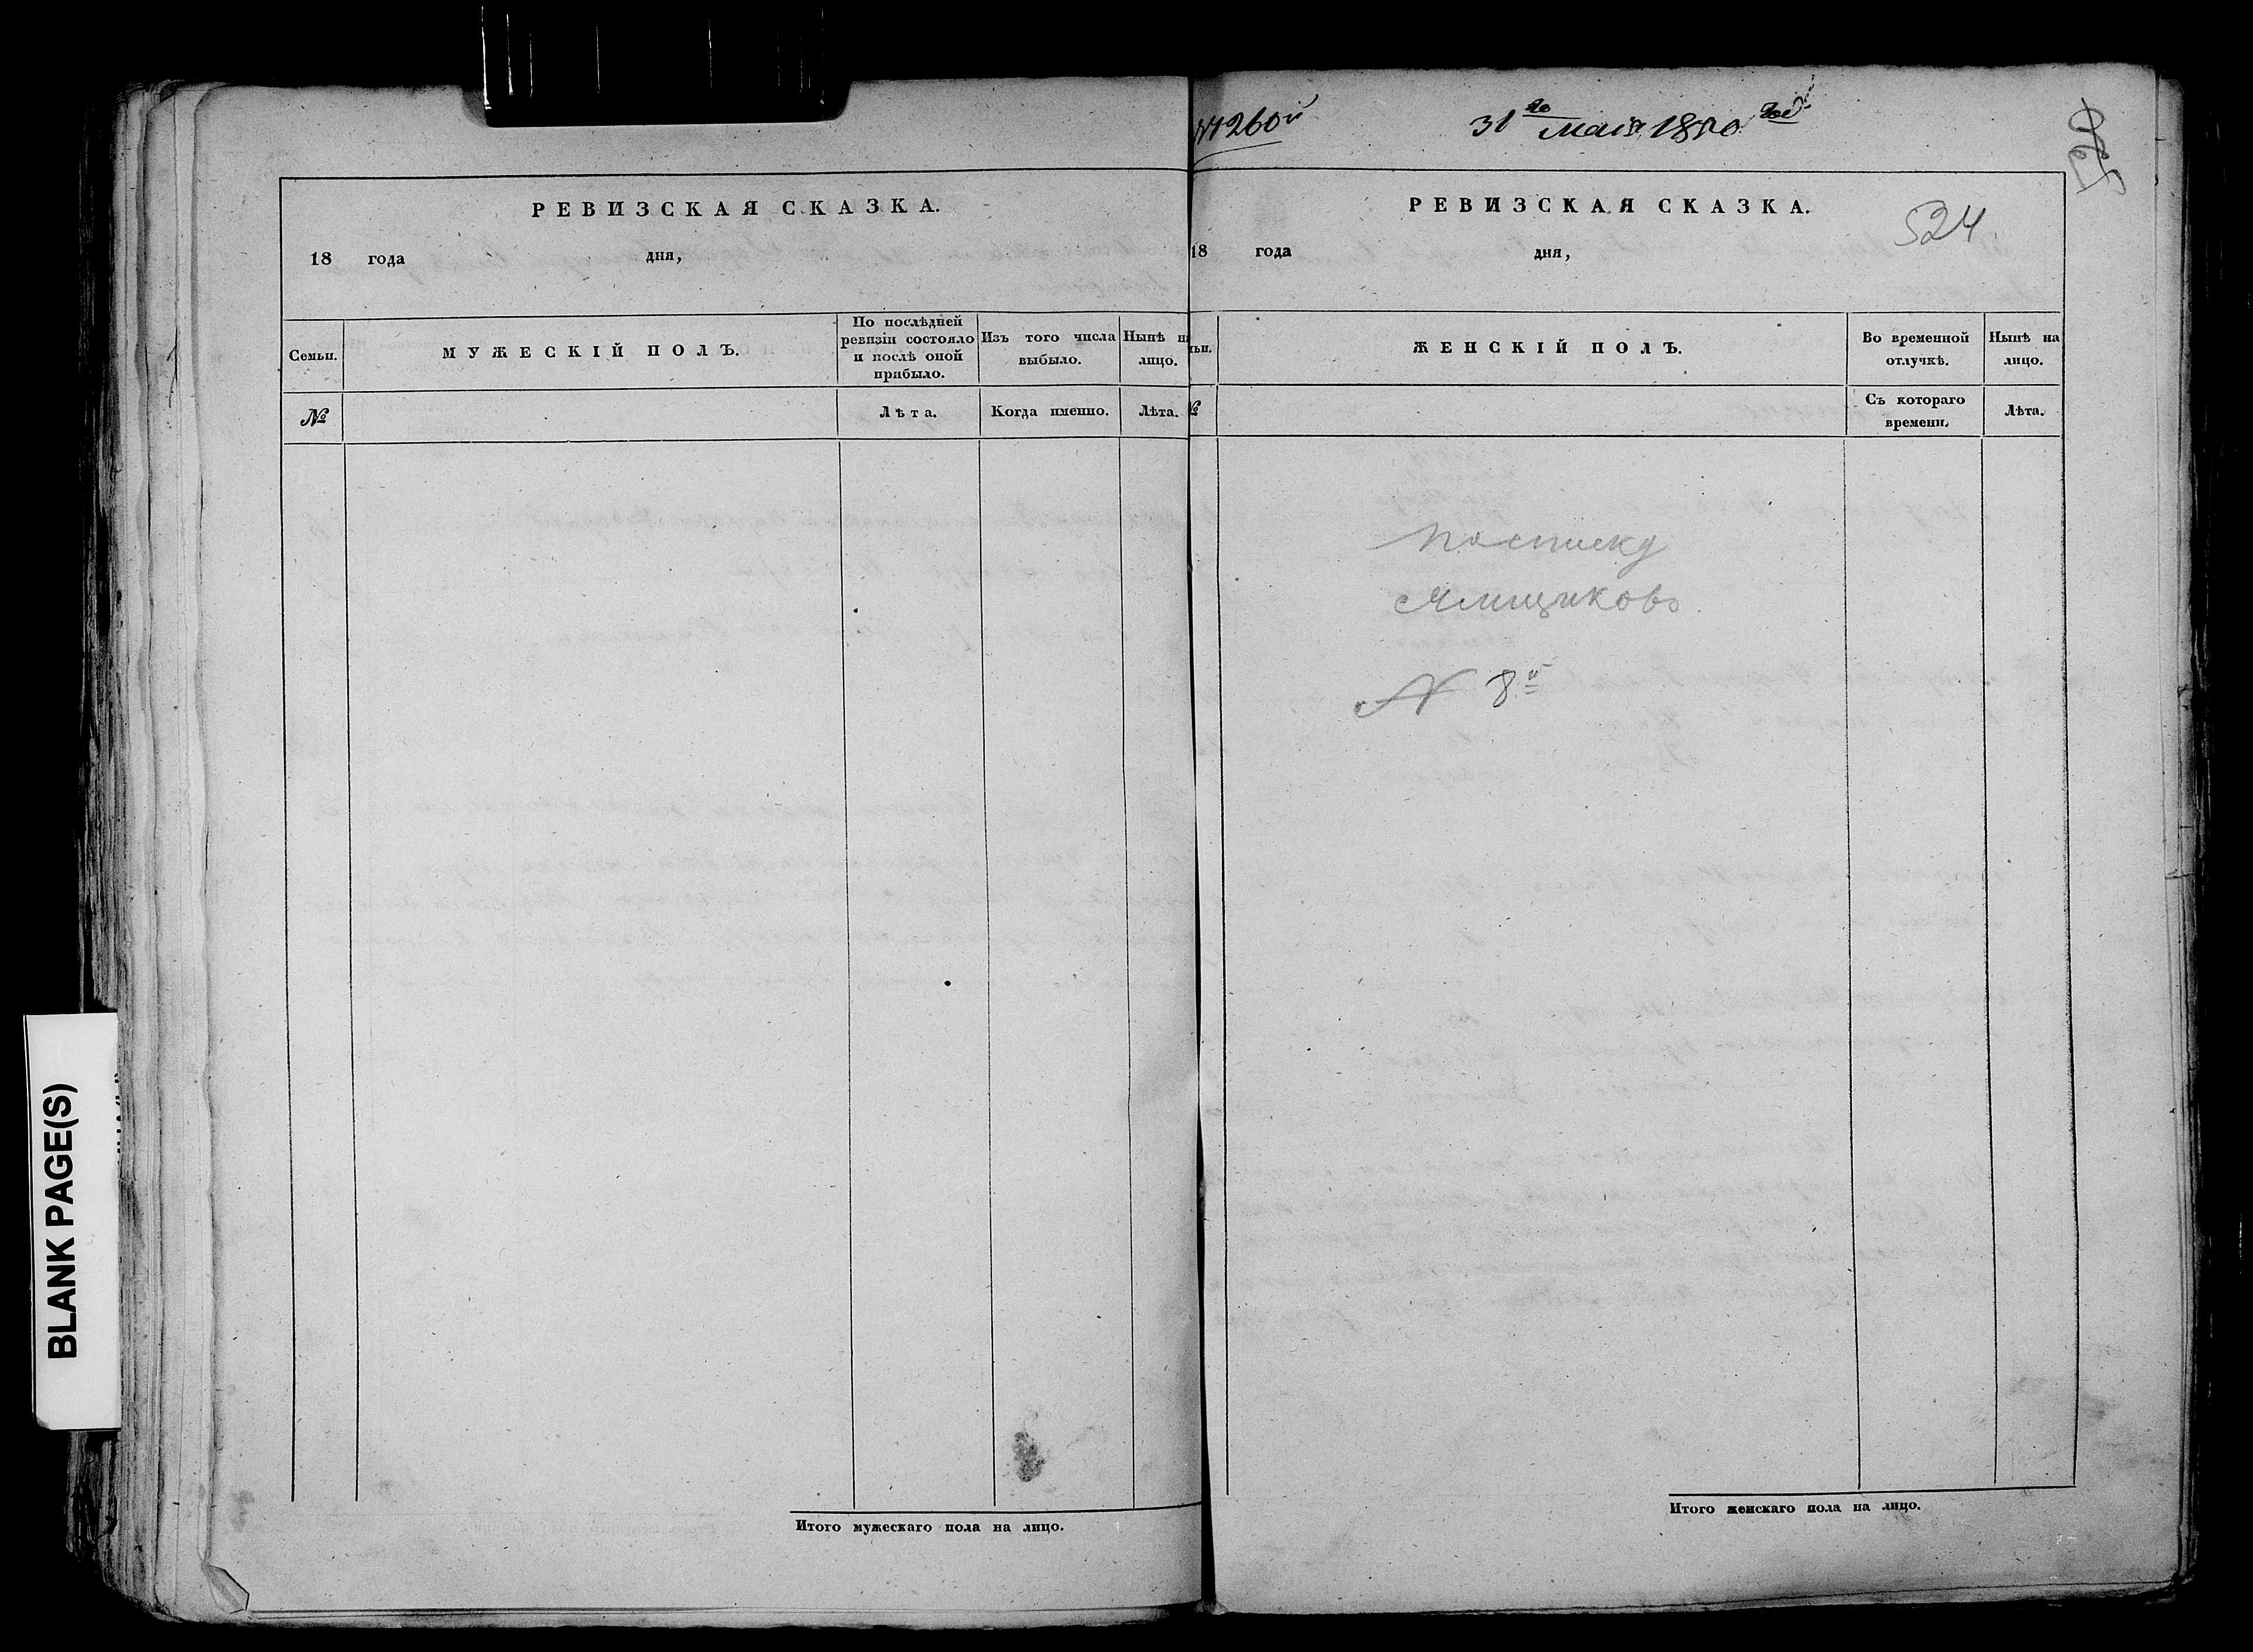 РЕВИЗСКАЯ СКАЗКА.
18 года дня,
Семьи.
МУЖЕСКІЙ ПОЛЪ.
По послѣдней ревизіи состояло и послѣ оной прибыло.
Изъ того числа выбыло.
Нынѣ на лицо.
№
Лѣта.
Когда именно.
Лѣта.
Итого мужескаго пола на лицо.
BLANK PAGE(S)
№ 260й
31го Маія 1850 года
РЕВИЗСКАЯ СКАЗКА.
524
18 года дня,
ЖЕНСКІЙ ПОЛЪ.
Во временной отлучкѣ.
Нынѣ на лицо.
№
Съ котораго времени.
Лѣта.
по списку
Ямщиковъ.
N 8й
Итого женскаго пола на лицо.